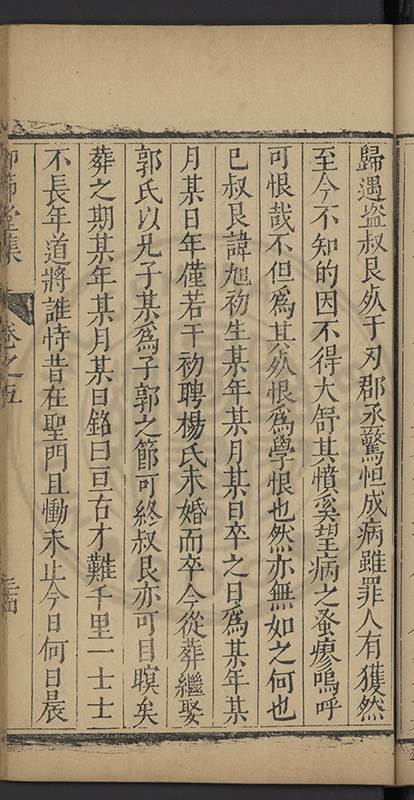 歸遇盗叔艮𣦸于刃郡丞驚怛成病雖罪人有獲然
至今不知的因不得大舒其憤奚望病之蚤瘳嗚呼
可恨哉不但爲其𣦸恨爲學恨也然亦無如之何也
已叔艮諱旭初生某年某月某日卒之日爲某年某
月某日年僅若干初聘楊氏未婚而卒今從葬繼娶
郭氏以兄子某爲子郭之節可終叔艮亦可目瞑矣
葬之期某年某月某日銘曰亘古才難千里一士士
不長年道將誰恃昔在聖門且慟未止今日何日晨
堂集
卷之五